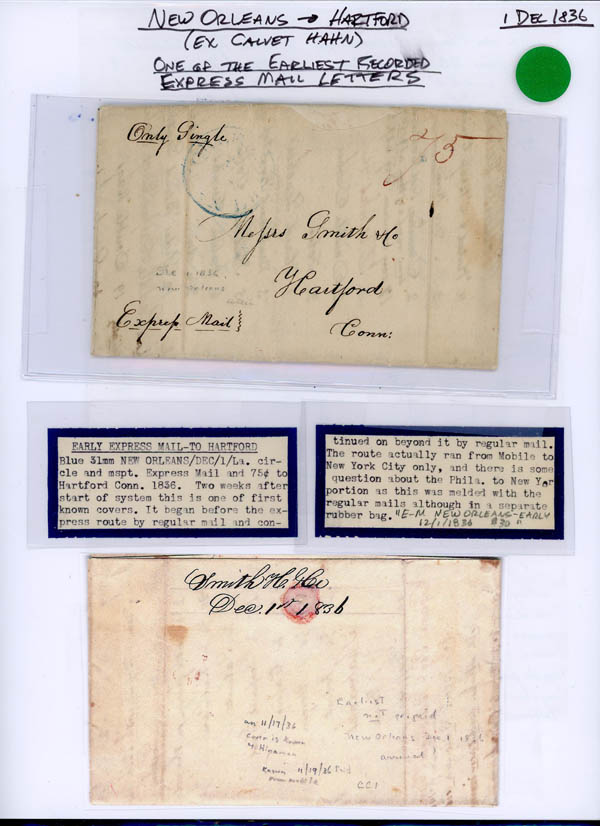 NEW ORLEANS → HARTFORD
1 DEC 1836
(EX CALVET HAHN)
ONE OF THE EARLIEST RECORDED
EXPRESS MAIL LETTERS
Only Single
75
Messrs Smith & Co
Dec 1 1836
New Orleans
Hartford
Express Mail
Conn:
EARLY EXPRESS MAIL-TO HARTFORD
Blue 31mm NEW ORLEANS/DEC/1/La. cir-
cle and mspt. Express Mail and 75¢ to
Hartford Conn. 1836. Two weeks after
start of system this is one of first
known covers. It began before the ex-
press route by regular mail and con-
tinued on beyond it by regular mail.
The route actually ran from Mobile to
New York City only, and there is some
question about the Phila. to New Yor
portion as this was melded with the
regular mails although in a separate
rubber bag. "E-M NEW ORLEANS-EARLY
12/1/1836 $30"
Smith H. & Co
Dec. 1st 1836
Earliest
not prepaid
New Orleans Dec 1 1836
an 11/17/36
cover is known
Known 11/19/36 Paid
from Mobile
CC1